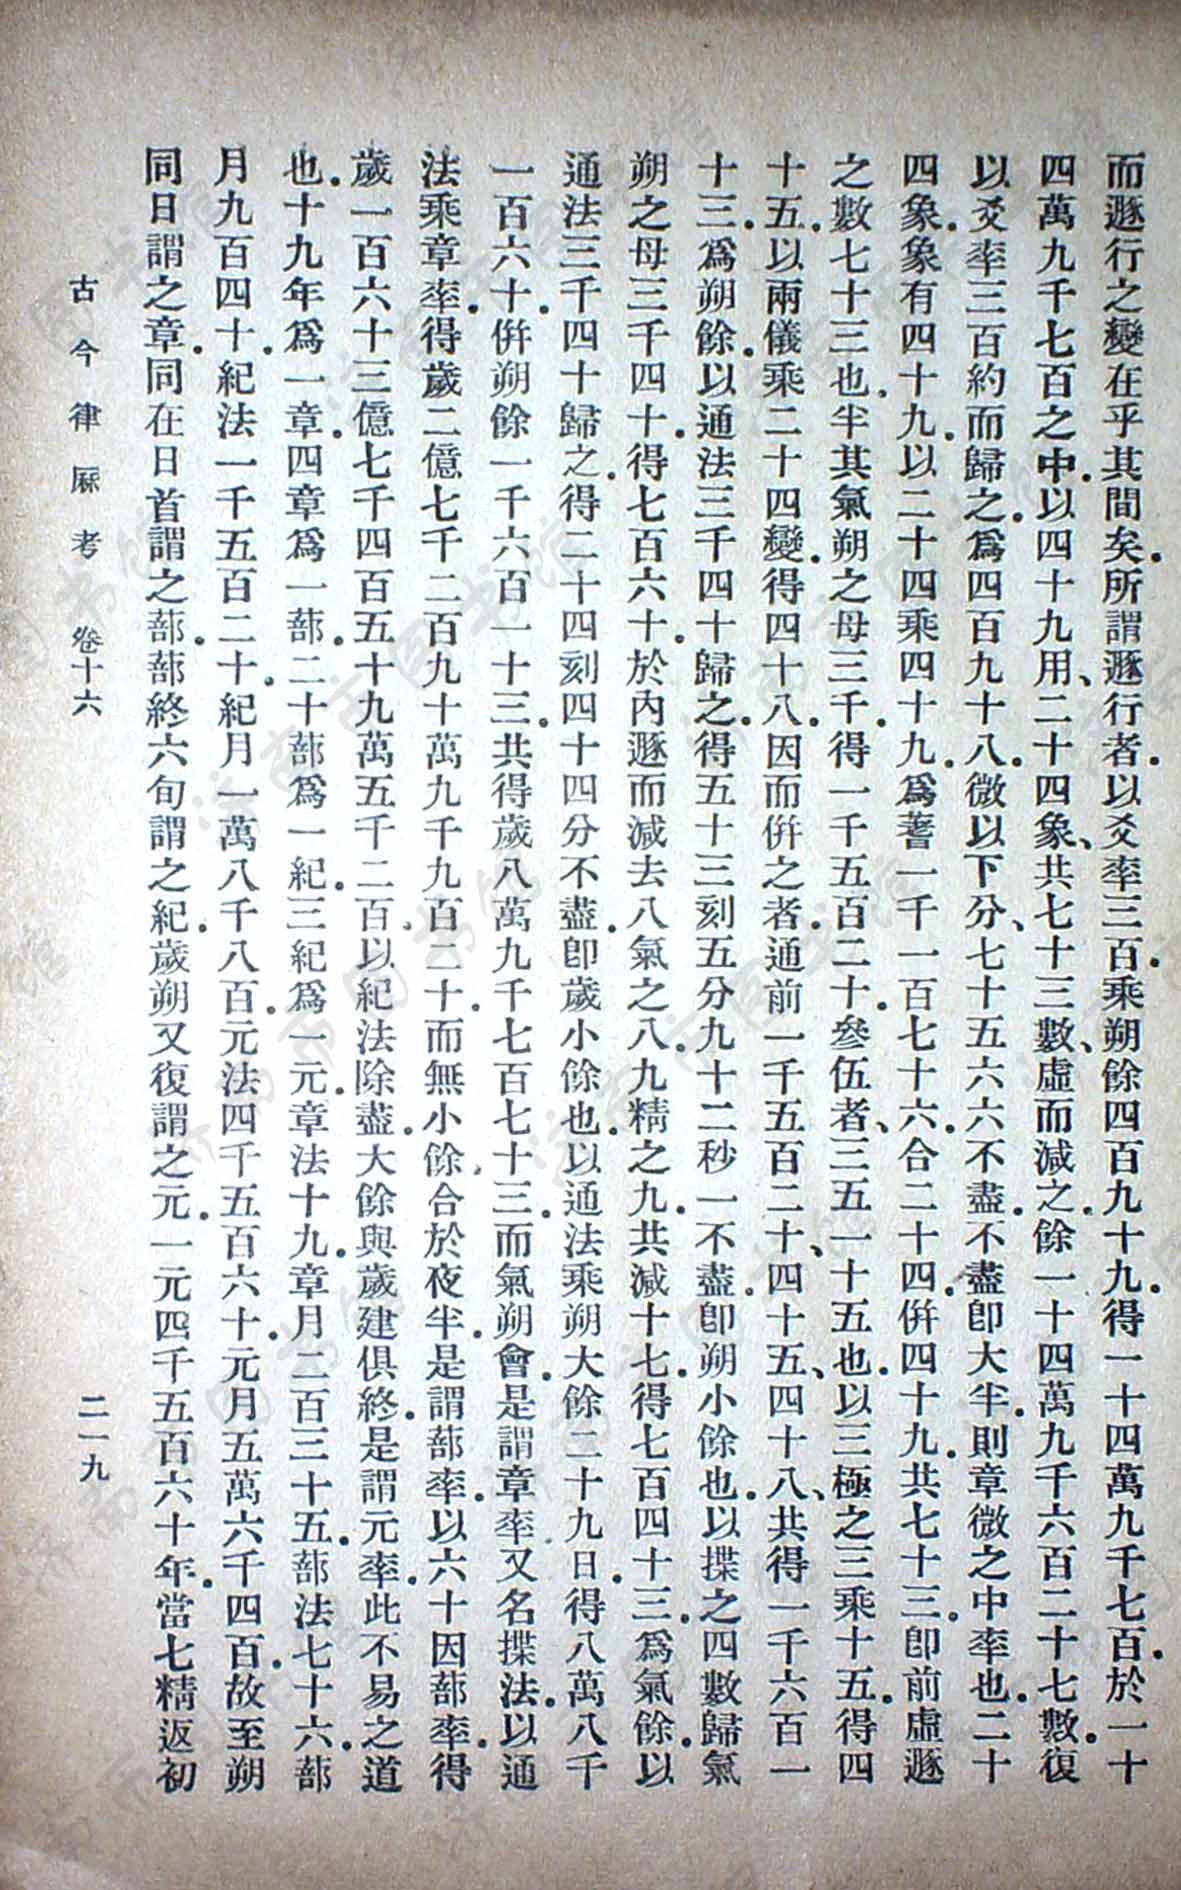 而遯行之變在乎其間矣。所謂遯行者。以爻率三百。乘朔餘四百九十九。得一十四萬九千七百。於一十
四萬九千七百之中。以四十九用、二十四象、共七十三數、虛而減之。餘一十四萬九千六百二十七數。復
以爻率三百約而歸之。爲四百九十八。微以下分、七十五六六不盡。不盡卽大半。則章微之中率也。二十
四象。象有四十九。以二十四乘四十九。爲蓍一千一百七十六。合二十四。倂四十九。共七十三。卽前虛遯
之數七十三也。半其氣朔之母三千。得一千五百二十。參伍者、三五一十五也。以三極之三乘十五。得四
十五。以兩儀乘二十四變。得四十八。因而倂之者。通前一千五百二十、四十五、四十八、共得一千六百一
十三。爲朔餘。以通法三千四十歸之。得五十三刻五分九十二秒一不盡。卽朔小餘也。以揲之四數歸氣
朔之母三千四十。得七百六十。於內遯而減去八氣之八。九精之九。共減十七。得七百四十三。爲氣餘。以
通法三千四十歸之。得二十四刻四十四分不盡。卽歲小餘也。以通法乘朔大餘二十九日。得八萬八千
一百六十。倂朔餘一千六百一十三。共得歲八萬九千七百七十三。而氣朔會。是謂章率。又名揲法。以通
法乘章率。得歲二億七千二百九十萬九千九百二十。而無小餘。合於夜半。是謂蔀率。以六十因蔀率。得
歲一百六十三億七千四百五十九萬五千二百。以紀法除盡。大餘與歲建俱終。是謂元率。此不易之道
也。十九年爲一章。四章爲一蔀。二十蔀爲一紀。三紀爲一元。章法十九。章月二百三十五。蔀法七十六。蔀
月九百四十。紀法一千五百二十。紀月一萬八千八百。元法四千五百六十。元月五萬六千四百。故至朔
同日謂之章。同在日首謂之蔀。蔀終六旬謂之紀。歲朔又復謂之元。一元四千五百六十年。當七精返初
古今律厤考 卷十六 二一九